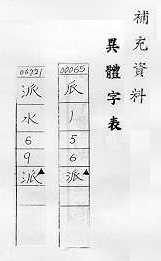 補充資料
異體字表
00065
𠂢
丿
5
6
派▲
06721
派
水
6
9
派▲